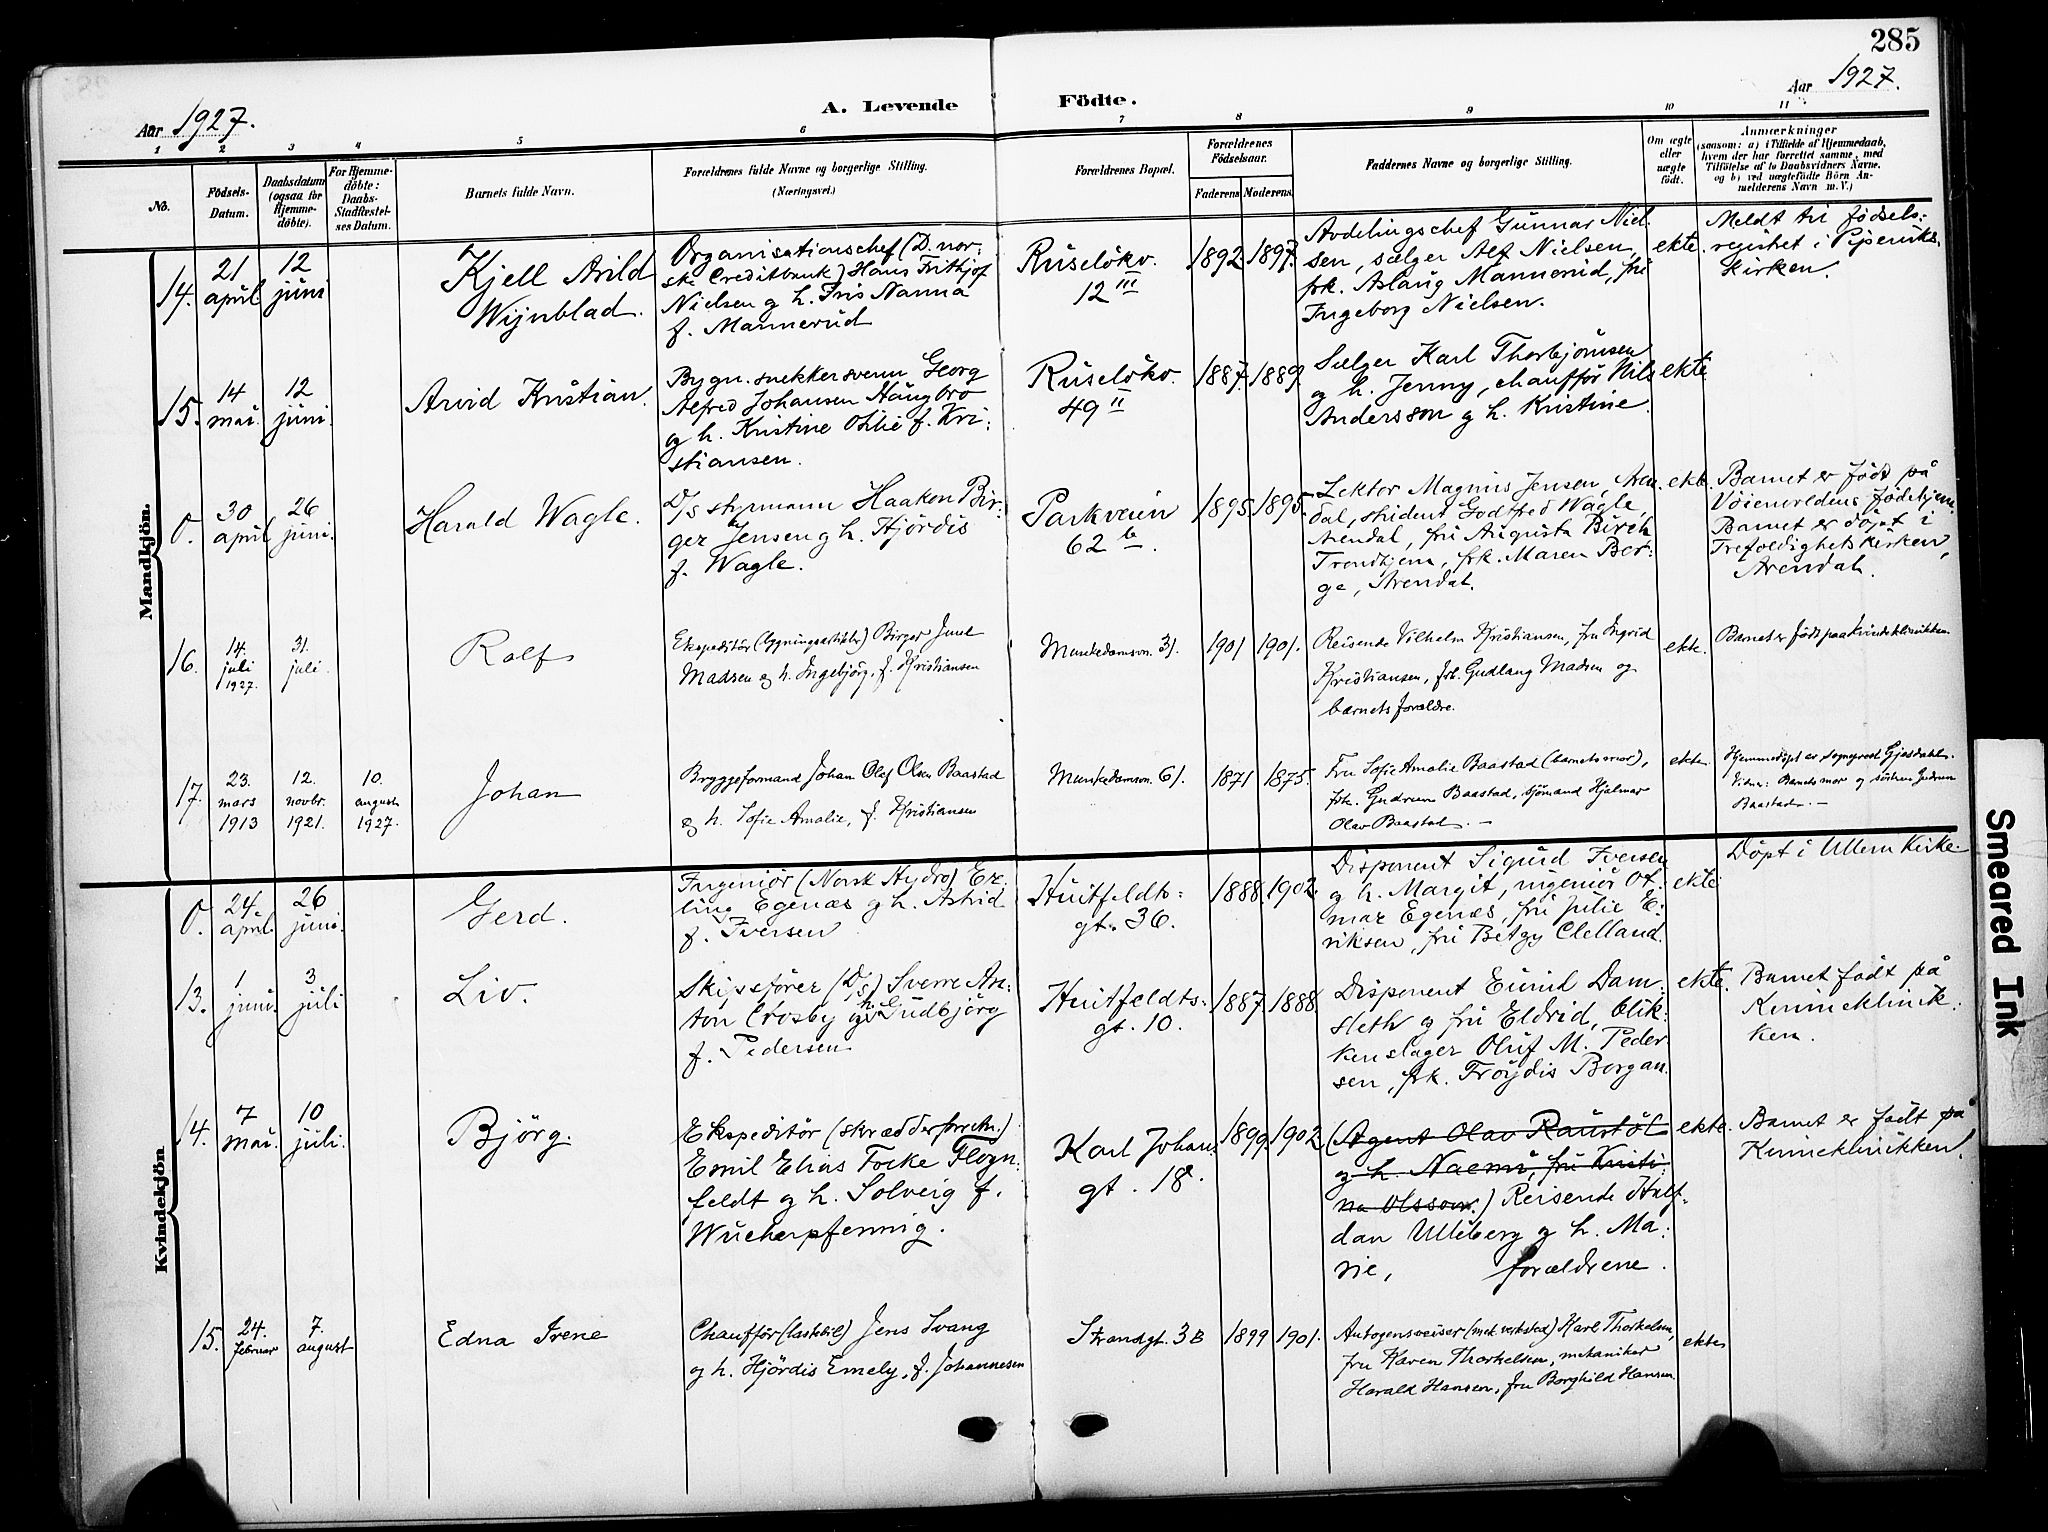 285
Aar 1927.
A. Levende Födte.
Aar 1927.
1 2 3 4 5 6 7 8 9 10 11
No.
Födsels-
Datum.
Daabsdatum
(ogsaa for
Hjemme-
döbte).
For Hjemme-
döbte:
Daabs-
Stadfæstel-
ses Datum.
Barnets fulde Navn.
Forældrenes fulde Navne og borgerlige Stilling.
(Næringsvei.)
Forældrenes Bopæl.
Forældrenes
Födselsaar.
Faderens. Moderens.
Faddernes Navne og borgerlige Stilling.
Om ægte
eller
uægte
födt.
Anmærkninger
(saasom: a) i Tilfælde af Hjemmedaab,
hvem der har forrettet samme, med
Tilföielse af to Daabsvidners Navne.
og b) ved uægtefödte Börn An-
melderens Navn m. V.)
Mandkjön.
14.
21
april
12
juni
Kjell Arild
Wijnblad.
Organisationschef (D. nor-
ske Creditbank) Hans Frithjof
Nielsen g h. Iris Nanna
f. Mannerud
Ruselökv.
12 III
1892 1897.
Avdelingschef Gunnar Niel-
sen, sælger Alf Nielsen,
frk. Aslaug Mannerud, fru
Ingeborg Nielsen.
ekte.
Meldt til födsels-
registret i Piperviks-
kirken.
15.
14
mai.
12
juni.
Arvid Kristian.
Bygn. snekkersvenn Georg
Alfred Johansen Haugbro
og h. Kristine Otilie f. Kri-
stiansen.
Ruselökv.
49 II
1887. 1889
Sælger Karl Thorbjörnsen
og h. Jenny, chaufför Nils
Andersson g h. Kristine.
ekte
0.
30
april
26
juni.
Harald Wagle.
D/s styrmann Haakon Bir-
ger Jensen g h. Hjördis
f. Wagle.
Parkveien
62 b.
1895 1895.
Lektor Magnus Jensen, Aren-
dal, student Godtfred Wagle,
Arendal, fru Augusta Birch
Trondhjem, frk. Maren Bor-
ge, Arendal.
ekte.
Barnet er födt på
Vöienvoldens födehjem.
Barnet er döpt i
Trefoldighetskirken,
Arendal.
16.
14.
juli
1927.
31.
juli.
Rolf
Ekspeditör (bygningsartikler) Birger Juul
Madsen og h. Ingebjörg, f. Kristiansen
Munkedamsvn. 31.
1901 1901.
Reisende Vilhelm Kristiansen, fru Ingrid
Kristiansen, frk. Gudlaug Madsen og
barnets forældre.
ekte.
Barnet er födt paa Kvindeklinikken
17.
23.
mars
1913
12.
novbr.
1921.
10.
august
1927.
Johan
Bryggeformand Johan Olaf Olsen Baastad
og h. Sofie Amalie, f. Kristiansen
Munkedamsvn. 61.
1871 1875.
Fru Sofie Amalie Baastad (barnets mor),
frk. Gudrun Baastad, sjömand Hjalmar
Olav Baastad. —
ekte.
Hjemmedöpt er Sogneprest Gjesdahl.
Vidner: Barnets mor og söstren Gudrun
Baastad. —
Kvindekjön
0.
24.
april.
26
juni.
Gerd.
Ingeniör (Norsk Hydro) Er-
ling Egenæs g h. Astrid
f. Iversen
Huitfeldts-
gt. 36.
1888. 1902.
Disponent Sigurd Iversen
g h. Margit, ingeniör Ot-
mar Egenæs, fru Julie E-
riksen, fru Betzy Clelland.
ekte
Döpt i Ullern Kirke.
13.
1
juni.
3
juli
Liv.
Skipsförer (D/s) Sverre An-
ton Crosby og h. Gudbjörg
f. Pedersen
Huitfeldts-
gt. 10.
1887. 1888
Disponent Eivind Dam-
sleth g fru Eldrid, blik-
kenslager Oluf M. Peder-
sen, frk. Fröydis Borgan.
ekte.
Barnet födt på
Kvinneklinik-
ken.
14.
7
mai.
10
juli.
Björg.
Ekspeditör (skrædderforretn.)
Emil Elias Focke Flogn-
feldt g h. Solveig f.
Wucherpfennig.
Karl Johans
gt. 18.
1899. 1902
(Agent Olav Raustöl
g h. Naemi, fru Kristi-
na Olsson.) Reisende Half-
dan Ulleberg g h. Ma-
rie, forældrene.
ekte.
Barnet er födt på
Kvinneklinikken.
15.
24.
februar
7.
august
Edna Irene
Chaufför (lastebil) Jens Svang
og h. Hjördis Emely, f. Johannesen
Strandgt. 3B
1899 1901.
Autogensveiser (mek. verksted) Karl Thorkelsen,
fru Karen Thorkelsen, mekaniker
Harald Hansen, fru Borghild Hansen
ekte
Smeared Ink